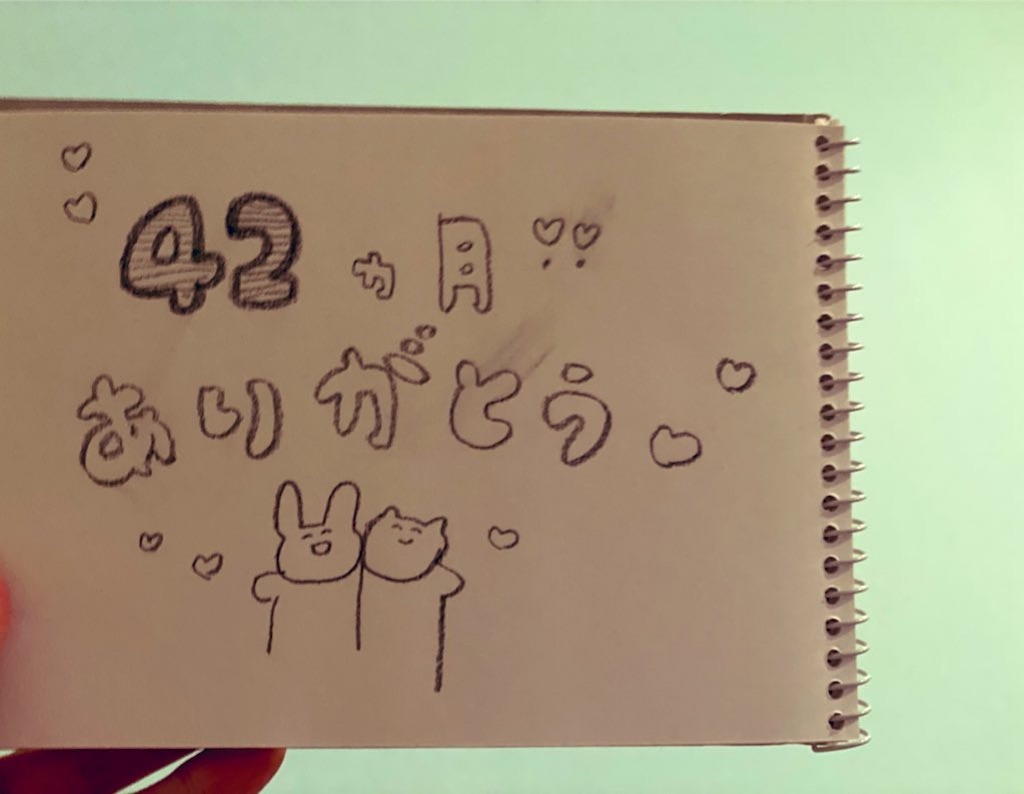 42ヵ月
ありがとう